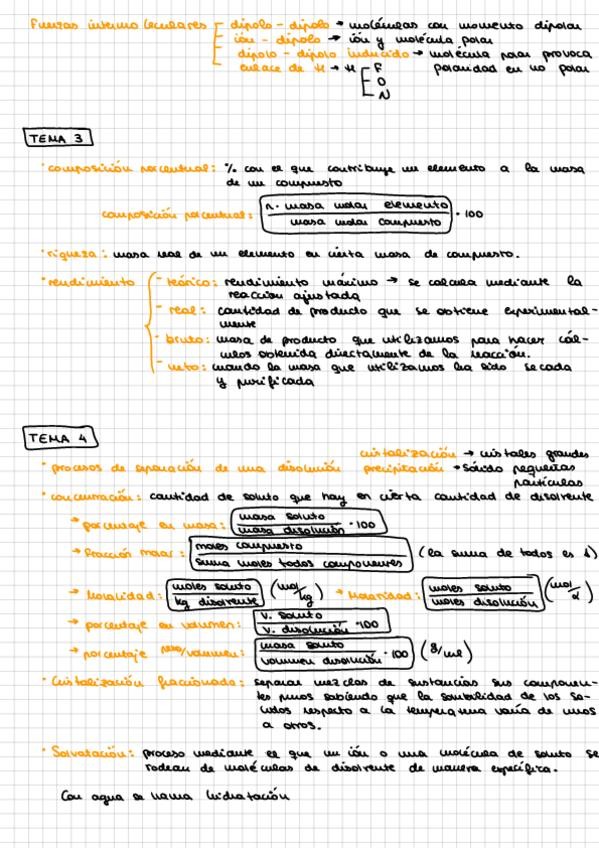 Fuerzas intermoleculares dipolo - dipolo → moléculas con momento dipolar
ión - dipolo → ión y molécula polar
dipolo - dipolo inducido → molécula polar provoca
enlace de H → H F polaridad en no polar
O
N
TEMA 3
· composición porcentual: % con el que contribuye un elemento a la masa
de un compuesto
composición porcentual: n · masa molar elemento / masa molar compuesto · 100
· riqueza: masa real de un elemento en cierta masa de compuesto.
· rendimiento - teórico: rendimiento máximo → se calcula mediante la
reacción ajustada
- real: cantidad de producto que se obtiene experimental-
mente
- bruto: masa de producto que utilizamos para hacer cál-
culos obtenida directamente de la reacción.
- neto: cuando la masa que utilizamos ha sido secada
y purificada
TEMA 4
cristalización → cristales grandes
· procesos de separación de una disolución precipitación → sólido pequeñas
partículas
· concentración: cantidad de soluto que hay en cierta cantidad de disolvente
→ porcentaje en masa: masa soluto / masa disolución · 100
→ fracción molar: moles compuesto / suma moles todos componentes (la suma de todos es 1)
→ Molalidad: moles soluto / kg disolvente (mol/kg) → Molaridad: moles soluto / moles disolución (mol/L)
→ porcentaje en volumen: v. soluto / v. disolución · 100
→ porcentaje peso/volumen: masa soluto / volumen disolución · 100 (g/ml)
· Cristalización fraccionada: separar mezclas de sustancias sus componen-
tes puros sabiendo que la solubilidad de los só-
lidos respecto a la temperatura varía de unos
a otros.
· Solvatación: proceso mediante el que un ión o una molécula de soluto se
rodean de moléculas de disolvente de manera específica.
Con agua se llama hidratación